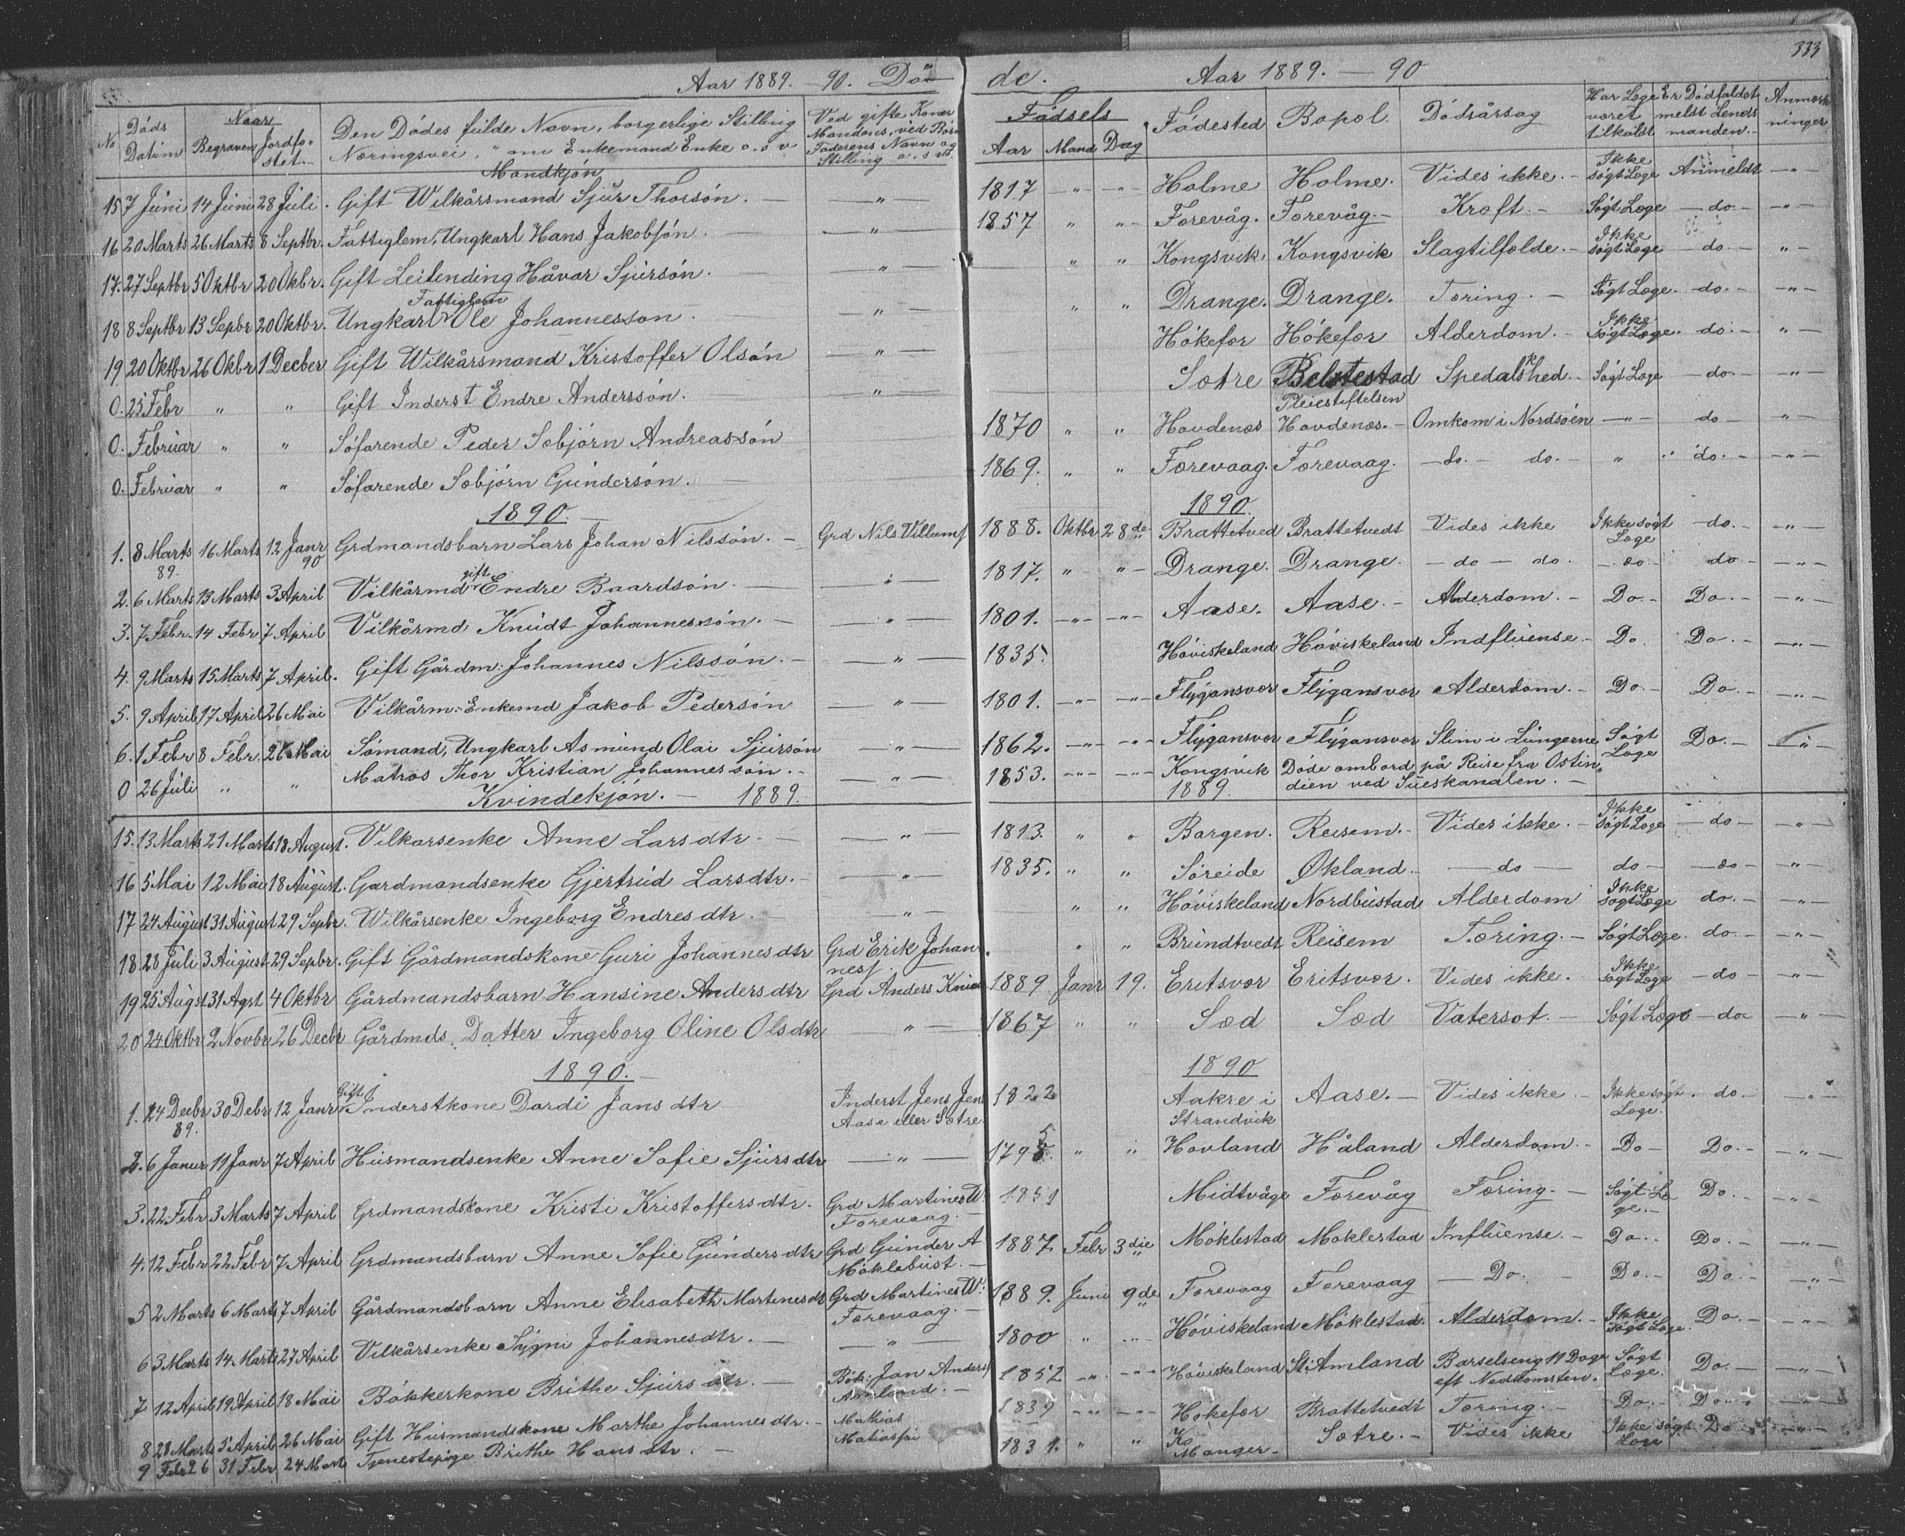 333
Aar 1889. — 90. Dö- de. Aar 1889. — 90
No Döds Datum Naar Begraven Jordfæstet. Den Dödes fulde Navn, borgerlige Stilling Næringsvei, Enkemand Enke o.s.v Ved gifte Koner Mandens, ved Börn Faderens Navn og Stilling o.s.v. Födsels Aar Maand Dag Födested Bopæl Dödsårsag Har Læge været tilkaldt Er Dödfaldet meldt Lensmanden. Anmærkninger
Mandkjön
15 7 Juni 14 Juni 28 Juli. Gift Wilkårsmand Sjur Thorsön. — " — 1817 — " — — " — Holme Holme. Vides ikke. — Ikke sögt Læge Anmeldt — " —
16 20 Marts 26 Marts 8 Septbr. Fattiglem, Ungkarl Hans Jakobsön. — " — 1857 " " Færevåg. Færevåg. — Kræft. — Sögt Læge — do — — " —
17. 27 Septbr 5 Oktbr 20 Okbr. Gift Leilending Håvar Sjursön. " " " Kongsvik. Kongsvik Slagtilfælde. — Ikke sögt Læge — do — — " —
18 8 Septbr 13 Sepbr 20 Oktbr. Ungkarl Fattiglem Ole Johannessön. — " — " " Drange. Drange. Tæring. — Sögt Læge. — do. — — " —
19 20 Oktbr 26 Okbr 1 Decber Gift Wilkårsmand Kristoffer Olsön — " — Hökefær Hökefær Alderdom. — Ikke Sögt Læge. — do. — — " —
0. 25 Febr " " Gift Inderst Endre Anderssön. — " — Sætre Pleiestiftelsen Spedalskhed. — Sögt Læge — do — — " —
0. Februar " " Söfarende Peder Sæbjörn Andreassön 1870 " " Hovdenæs Hovdenæs. — Omkom i Nordsöen — " — do — — " —
0. Februar " " Söfarende Sæbjörn Gundersön. — 1869. " " Færevaag. Færevaag. — do. — do. — " do. — — " —
1890. 1890.
1. 8 Marts 89. 16 Marts 12 Janr 90 Grdmandsbarn Lars Johan Nilssön. — Grd Nils Villums 1888. Oktbr 28de Brattetved Brattetvedt Vides ikke Ikke sögt Læge — do. — — " —
2. 6 Marts 13 Marts 3 April Vilkårmd gift Endre Baardsön. — " — 1817. " — " — Drange. Drange. — do — do. — do — do — — " —
3. 7 Febr. 14 Febr 7 April Vilkårmd Knudt Johannessön. — " — 1801. — " — — " — Aase. Aase. — Alderdom. — Do — Do. — — " —
4. 9 Marts 15 Marts 7 April. Gift Gårdm: Johannes Nilssön. — " — 1835. Höviskeland Höviskeland Indfluense. — Do Do. — — " —
5. 9 April 17 April 26 Mai Vilkårm: Enkemd Jakob Pedersön — " — 1801. — " — — " — Flýgansvær Flýgansvær Alderdom. — Do. — Do. — — " —
6. 1 Febr 8 Febr. 26 Mai Sömand, Ungkarl Asmund Olai Sjursön — " — 1862. — " — — " — Flýgansvær Flýgansvær Slim i Lungerne Sögt Læge Do. — — " —
0 26 Juli " " Matros Thor Kristian Johannessön. — " — 1853. — " — — " — Kongsvik Döde ombord på Reise fra Ostindien ved Sueskanalen. —
Kvindekjön. — 1889. 1889.
15. 13 Marts 21 Marts 18 August. Vilkarsenke Anne Larsdtr. — " — 1813. " " Bargen. Reisem. — Vides ikke. — Ikke sögt Læge — do — — " —
16 5 Mai 12 Mai 18 August. Gardmandsenke Gjertrud Larsdtr. — " — 1835. " " Söreide Økland. — do — do — do — — " —
17 24 August 31 August 29 Sepbr. Wilkårsenke Ingeborg Endresdtr. — " — " " Höviskeland Nordbustad Alderdom Ikke sögt Læge do. — — " —
18. 28 Juli 3 August 29 Sepbr. Gift Gårdmandskone Guri Johannesdtr Grd Erik Johannes " " Brundtvedt Reisem Tæring. — Sögt Læge. — do. — — " —
19 25 Augst 31 Agst 4 Oktbr Gårdmandsbarn Hansine Andersdtr Grd Anders Knud 1889 Janr 19. Eritsvær Eritsvær. Vides ikke. Ikke sögt Læge — do — — " —
20 24 Oktbr 2 Novbr 26 Decbr Gårdmds Datter Ingeborg Oline Olsdtr — " — 1867 " " Sæd Sæd Vatersot. — Sögt Læge — do — — " —
1890. 1890
1. 24 Decbr 89. 30 Debr 12 Janr Gift Inderstkone Dordi Jansdtr Inderst Jens Jens Aase eller Sætre 1822 Aakre i Strandvik Aase. — Vides ikke. — Ikke sögt Læge. — do. — — " —
2. 6 Janur 11 Janr 7 April Husmandsenke Anne Sofie Sjursdtr — " — 1795. " " Hovland Håland Alderdom. — Do — Do. — — " —
3. 22 Febr 3 Marts 7 April Grdmandskone Kristi Kristoffersdtr. Grd Martines W: Færevaag. — 1851 Midtvåge Færevåg Tæring. — Sögt Læge. — Do. — — " —
4. 12 Febr 22 Febr 7 April Grdmandsbarn Anne Sofie Gundersdtr Grd Gunder A Möklebust. — 1887. Febr 3die Möklestad Möklestad Influense. — Do. Do. — — " —
5 2 Marts 6 Marts 7 April Gårdmandsbarn Anne Elisabeth Martinesdt Grd Martines W: Færevaag. — 1889. Juni 9de Færevaag Færevaag — Do. Do. — Do. — — " —
6 3 Marts 14 Marts 27 April Vilkårsenke Sygni Johannesdtr. — " 1800 " — " — Höviskeland Möklestad. Alderdom. — Ikke Sögt Læge. Do. — — " —
7 12 April 19 April 18 Mai Bökkerkone Brithe Sjursdtr. — Bök: Jan Anders Amland. — 1852 — " — — " — Höviskeland St: Amland Barselseng 11 Dage eft Nedkomsten. Sögt Læge. Do. — — " —
8 28 Marts 5 April 26 Mai Gift Husmandskone Marthe Johannesdtr. — Mathias Matiassen 1839 — " — — " — Hökefær Brattetvedt Tæring. — Do. Do. — — " —
9 Febr 26 31 Febr 24 Mart Tjenestepige Brithe Hansdtr. — 1831. " " Manger — Sætre. — Vides ikke Ikke sögt Læge Do — " —